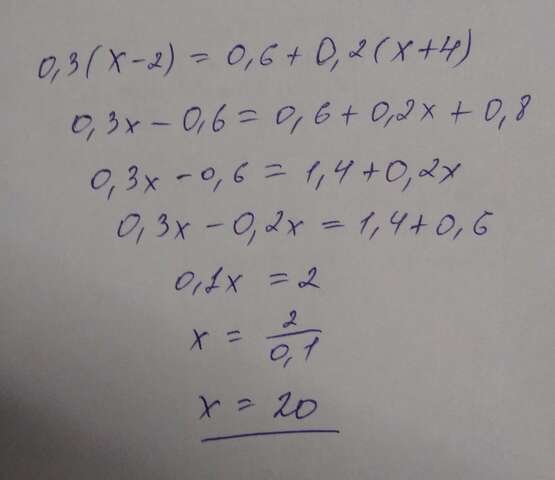 0,3(x-2) = 0,6+0,2(x+4)
0,3x-0,6 = 0,6+0,2x+0,8
0,3x-0,6 = 1,4+0,2x
0,3x-0,2x = 1,4+0,6
0,1x = 2
x = 2/0,1
x = 20